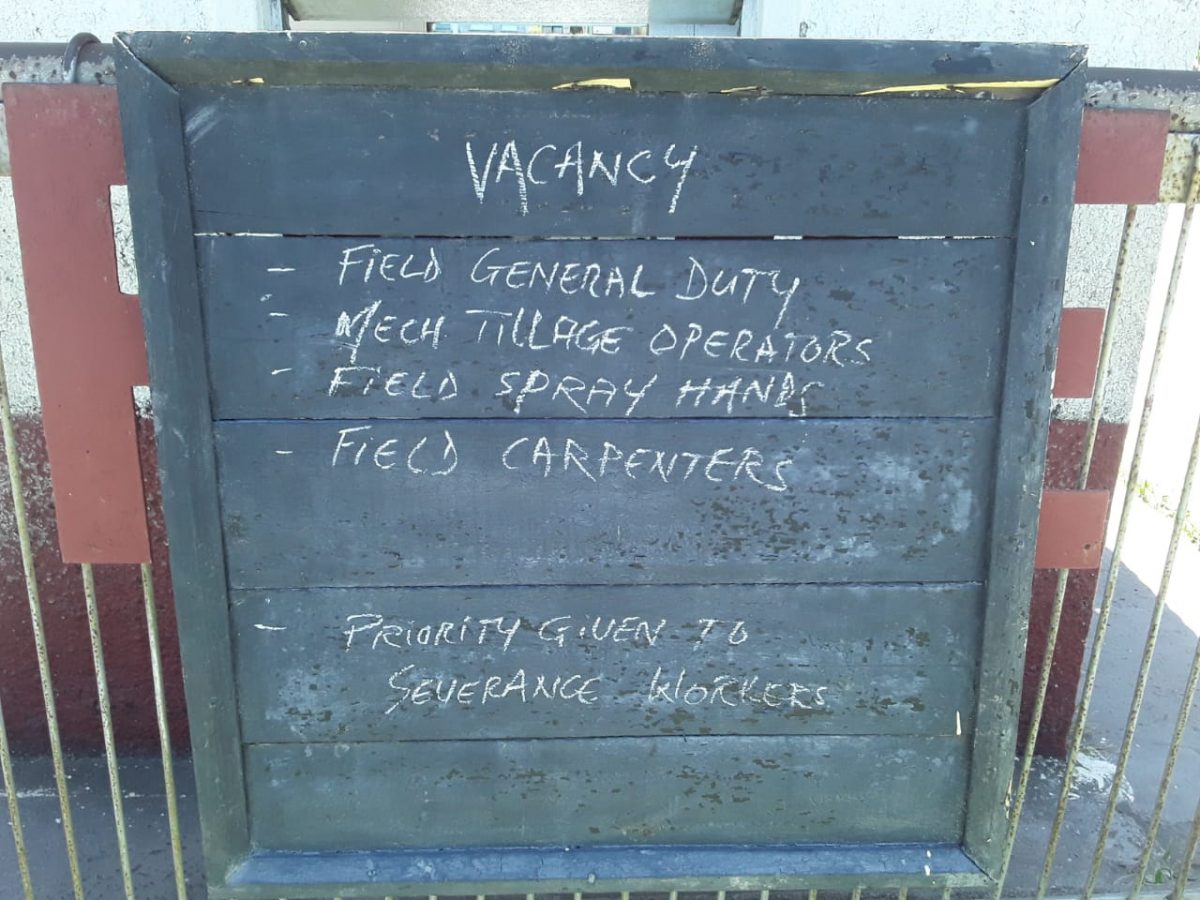 VACANCY
- FIELD GENERAL DUTY
- MECH TILLAGE OPERATORS
- FIELD SPRAY HANDS
- FIELD CARPENTERS
- PRIORITY GIVEN TO
SEVERANCE WORKERS